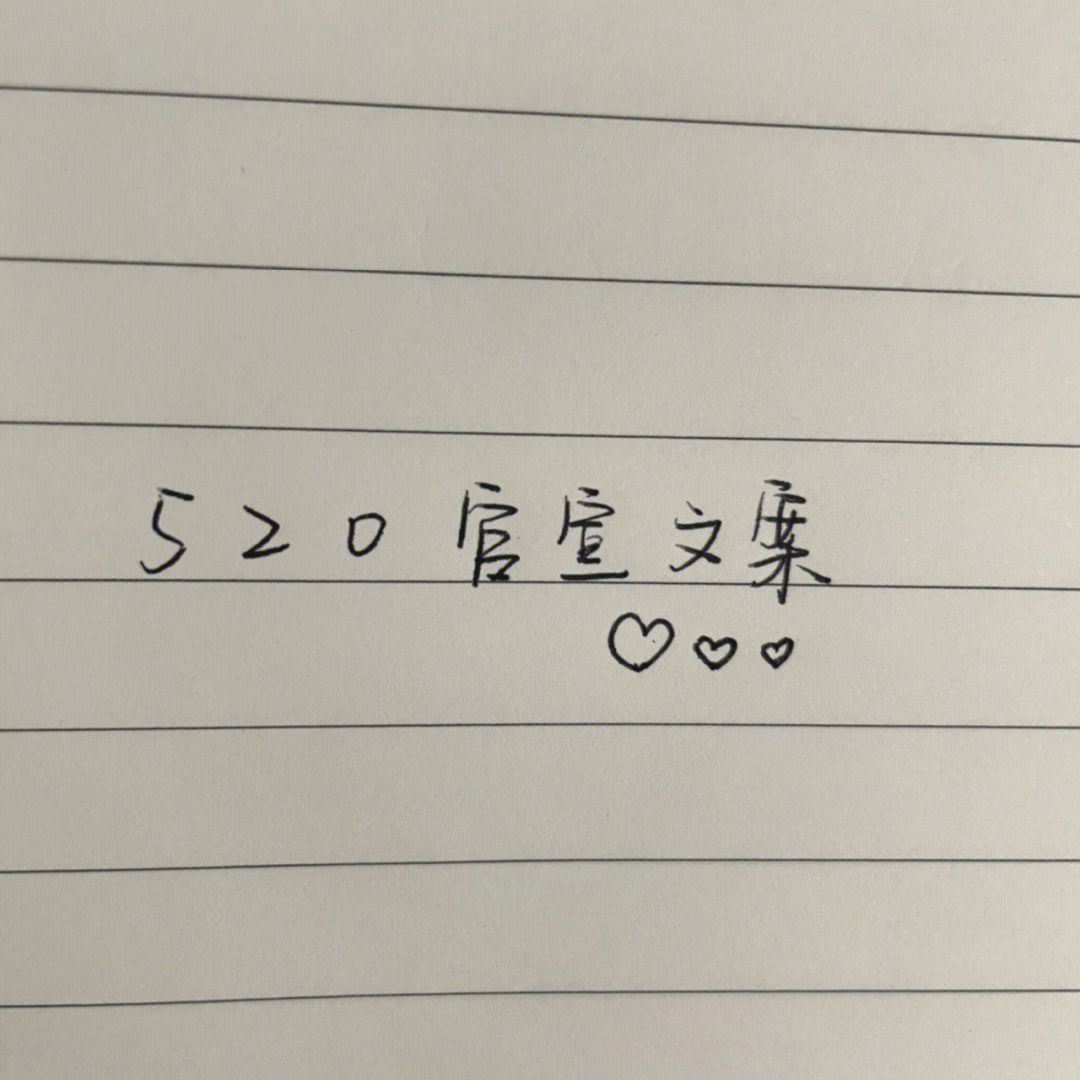 520官宣文案